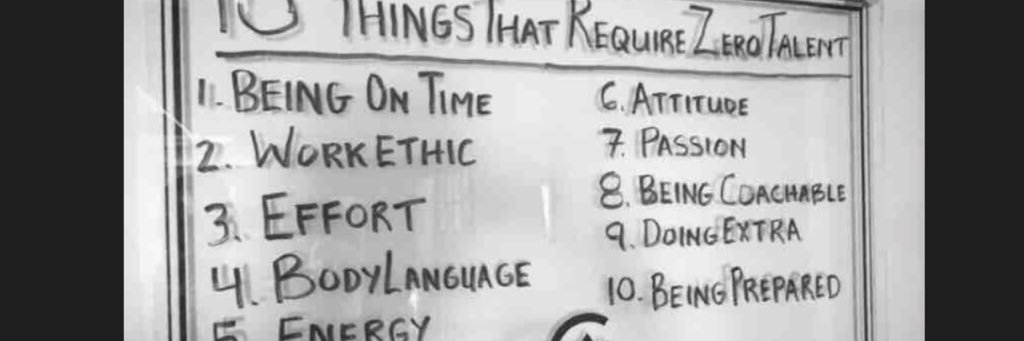 10 THINGS THAT REQUIRE ZERO TALENT
1. BEING ON TIME
2. WORK ETHIC
3. EFFORT
4. BODY LANGUAGE
5. ENERGY
6. ATTITUDE
7. PASSION
8. BEING COACHABLE
9. DOING EXTRA
10. BEING PREPARED